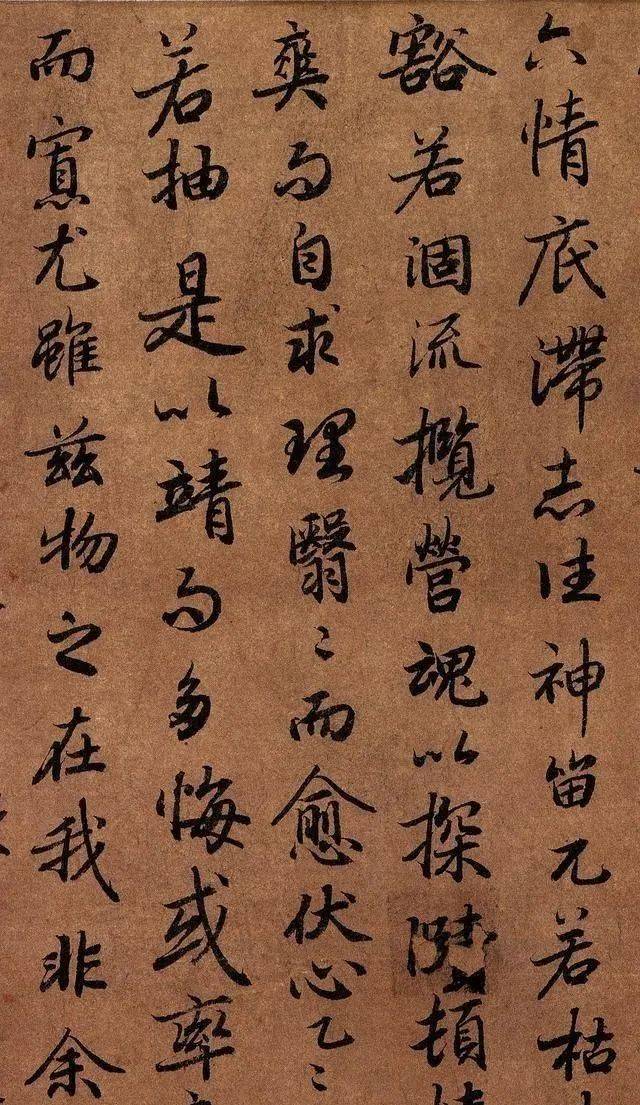 六情底滯志往神留兀若枯
豁若涸流攬營魂以探賾頓
爽而自求理翳〻而愈伏心乙〻
若抽是以靖而多悔或率
而寡尤雖兹物之在我非余